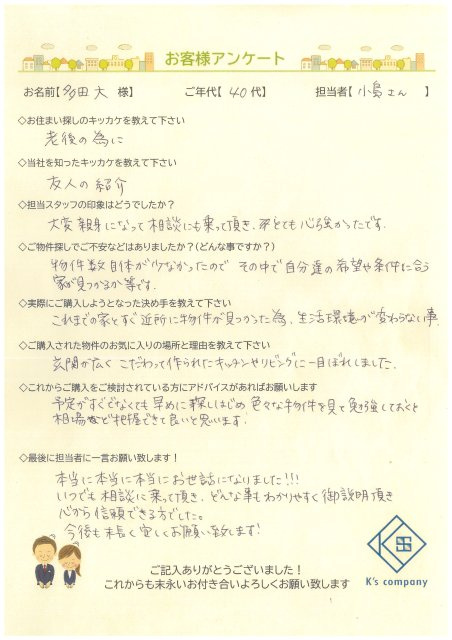 お客様アンケート
お名前【多田 大 様】 ご年代【40代】 担当者【小島さん 】
◇お住まい探しのキッカケを教えて下さい
老後の為に
◇当社を知ったキッカケを教えて下さい
友人の紹介
◇担当スタッフの印象はどうでしたか？
大変親身になって相談にも乗って頂き、とても心強かったです。
◇ご物件探しでご不安などはありましたか？(どんな事ですか？)
物件数自体が少なかったので その中で自分達の希望や条件に合う
家が見つかるか等です.
◇実際にご購入しようとなった決め手を教えて下さい
これまでの家とすぐ近所に物件が見つかった為、生活環境が変わらない事
◇ご購入された物件のお気に入りの場所と理由を教えて下さい
玄関が広く こだわって作られたキッチンやリビングに一目ぼれしました.
◇これから購入をご検討されている方にアドバイスがあればお願いします
予定がすぐでなくても早めに探しはじめ 色々な物件を見て勉強しておくと
相場など把握できて良いと思います.
◇最後に担当者に一言お願い致します！
本当に本当に本当にお世話になりました!!!
いつでも相談に乗って頂き、どんな事もわかりやすく御説明頂き
心から信頼できる方でした。
今後も末長く宜しくお願い致します!
ご記入ありがとうございました！
これからも末永いお付き合いよろしくお願い致します
K's company